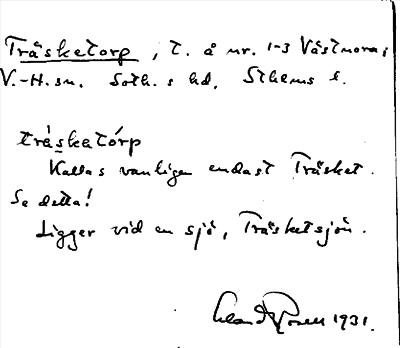 Träsketorp, t. å nr. 1-3 Västnora,
V.-H. sn. Soth.s hd. Sthlms l.
träsketårp
Kallas vanligen endast Träsket.
Se detta!
Ligger vid en sjö, Träsketsjön.
1931.